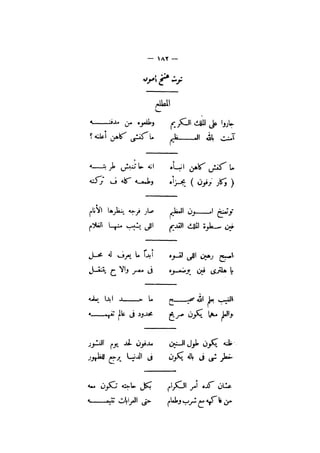 — ١٨٢ —
توت عنخ آمون
المطلع
جاروا على الملك الكريم وطلعوه من مدفنه
آمنت بالله العظيم ما كنشي كاهن أعلنه ؟
ما كنش كاهن انبأه انه حا تنبش طربته
( وكارنرفون ) يجزأه وطمعه كله ف تركته
توتعنخ امون العظيم صار فرجه ينظرها الأنام
فين سطوة الملك القديم اللي يشيب منها الغلام
اصبح رهين اللي لقوه أبداً ما يعرف له محل
يا هلترى فين يوضعوه فى مصر والا ح يتنقل
الغيب بعلم الله صحيح ما حد ابدا يعلمه
والعلم مهما يكون صريح محدود فى عالم تفهمه
ظنه يكون طول السنين مدفون لحد يوم النشور
خطر شى فى باله يكون فى الدنيا يرجع للظهور
عشان كده أمر الكرام بكل حاجته تكون معه
من فاكهه مع شرب وطعام حتى العرابات تتبعه